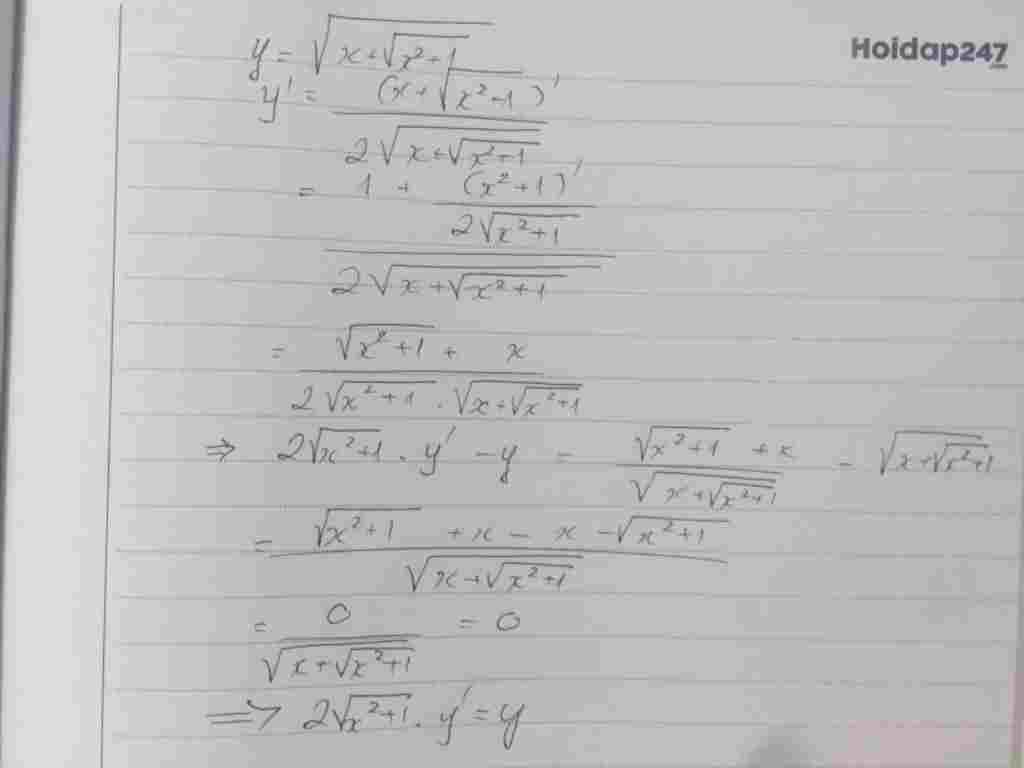 Hoidap247
y = √(x+√(x²+1))
y' = (x+√(x²+1))' / 2√(x+√(x²+1))
= (1 + (x²+1)' / 2√(x²+1)) / 2√(x+√(x²+1))
= (√(x²+1) + x) / (2√(x²+1) . √(x+√(x²+1)))
⇒ 2√(x²+1) . y' - y = (√(x²+1) + x) / √(x+√(x²+1)) - √(x+√(x²+1))
= (√(x²+1) + x - x - √(x²+1)) / √(x+√(x²+1))
= 0 / √(x+√(x²+1)) = 0
⇒ 2√(x²+1) . y' = y